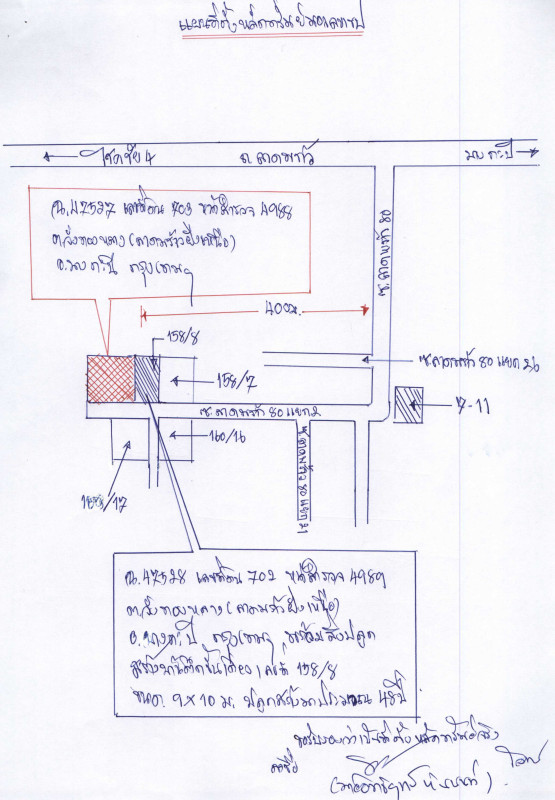 แผนที่ตั้งหลักทรัพย์โดยสังเขป
โชคชัย 4
ถ.ลาดพร้าว
บางกะปิ
ฉ.47527 เลขที่ดิน 703 หน้าสำรวจ 4988
ต.วังทองหลาง (ลาดพร้าวฝั่งเหนือ)
อ.บางกะปิ กรุงเทพฯ
ซ.ลาดพร้าว 80
400ม.
158/8
158/7
ซ.ลาดพร้าว 80 แยก 26
ซ.ลาดพร้าว 80 แยก 2
7-11
160/16
/17
ซ.ลาดพร้าว 80 แยก 21
ฉ.47528 เลขที่ดิน 702 หน้าสำรวจ 4989
ต.วังทองหลาง (ลาดพร้าวฝั่งเหนือ)
อ.บางกะปิ กรุงเทพฯ พร้อมสิ่งปลูก
สร้างบ้านตึกชั้นเดียว เลขที่ 158/8
ขนาด 9x10 ม. ปลูกสร้างมาประมาณ 48 ปี
ขอรับรองว่าเป็นที่ตั้งหลักทรัพย์จริง
ลงชื่อ